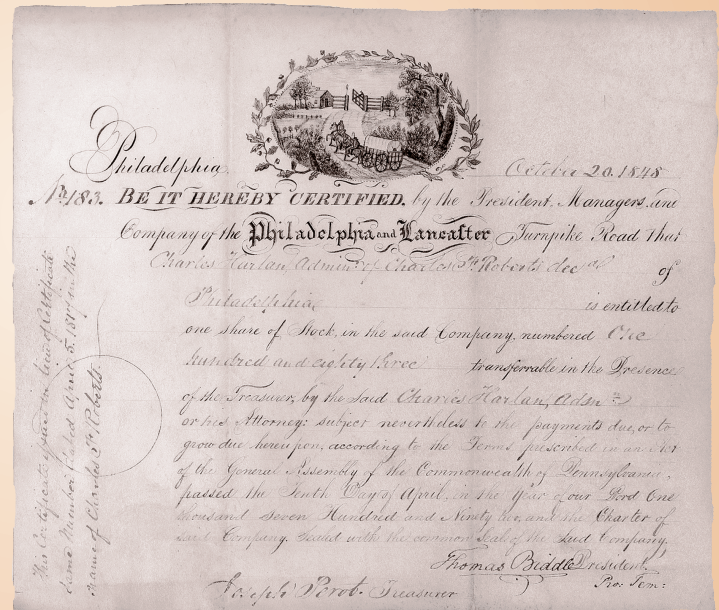 Philadelphia October 20. 1848
No. 183. BE IT HEREBY CERTIFIED, by the President, Managers, and
Company of the Philadelphia and Lancaster Turnpike Road That
Charles Harlan, Admin. of Charles Roberts dec of
Philadelphia, is entitled to
one share of Stock, in the said Company, numbered One
hundred and eighty three transferrable in the Presence
of the Treasurer, by the said Charles Harlan, Adm
or his Attorney: subject nevertheless to the payments due, or to
grow due hereupon, according to the Terms prescribed in an Act
of the General Assembly of the Commonwealth of Pennsylvania,
passed the Tenth Day of April, in the Year of our Lord One
thousand seven Hundred and Ninety and the Charter of
said Company. Sealed with the common Seal of the said Company.
Thomas Biddle President.
Pro: Tem:
Joseph Perot. Treasurer
This Certificate issued in lieu of Certificate
same Number dated April 5. in the
name of Charles Roberts.